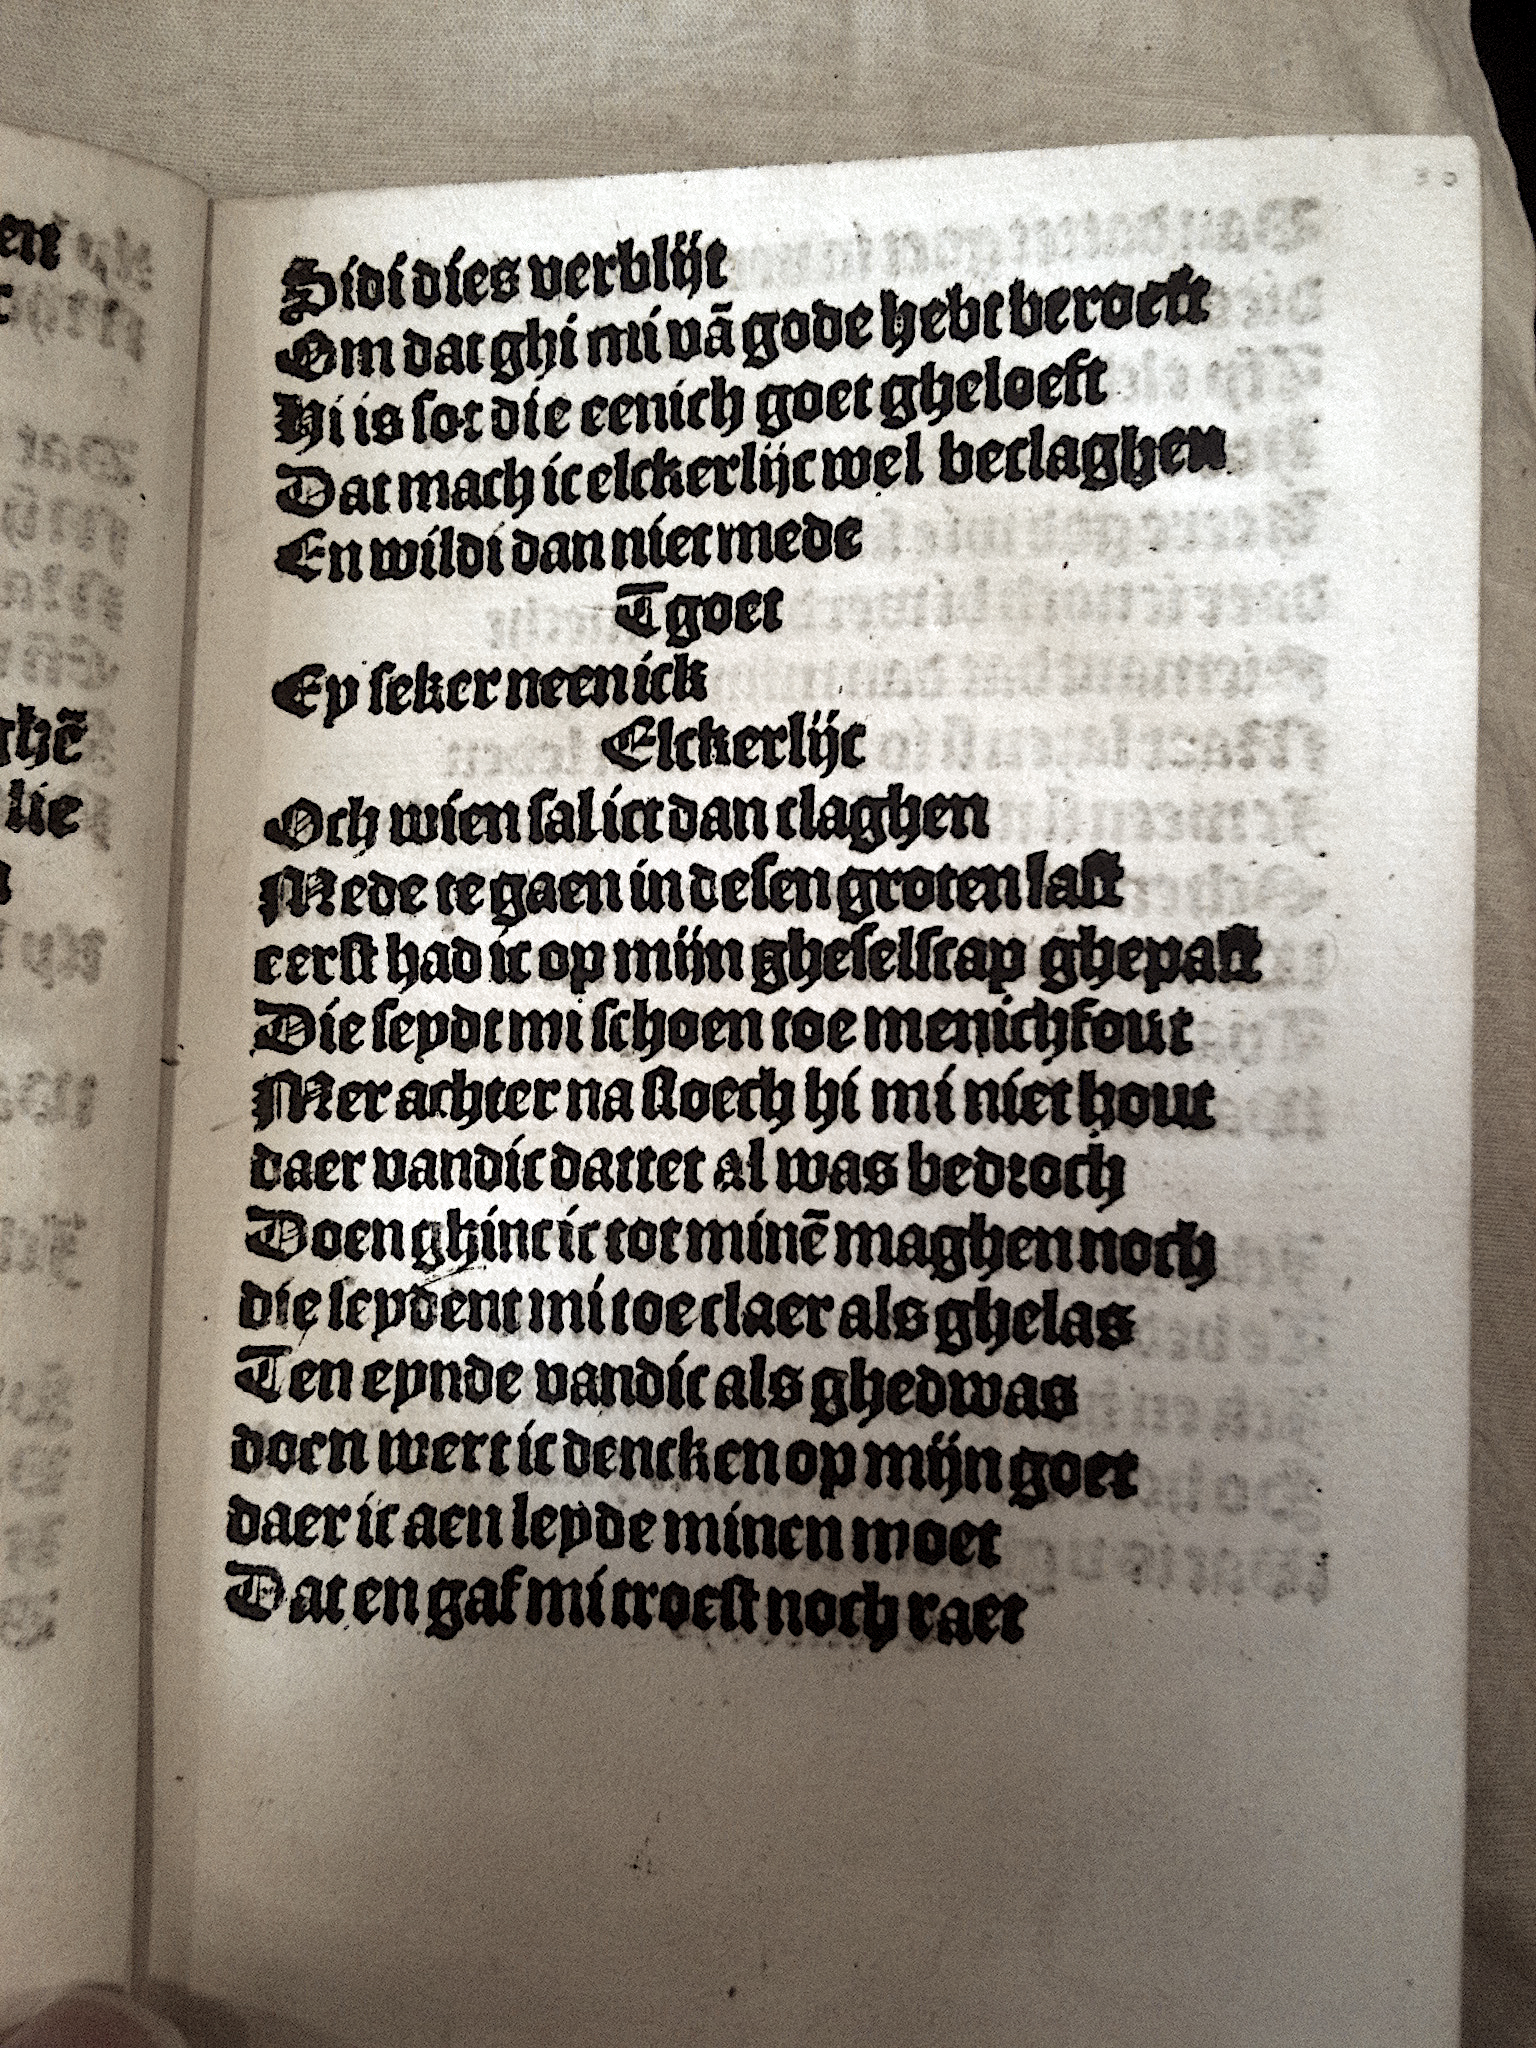 Sidi dies verblijt
Om dat ghi mi vā gode hebt beroeft
Hi is sot die eenich goet gheloeft
Dat mach ic elckerlijc wel beclaghen
En wildi dan niet mede
Tgoet
Ey seker neenick
Elckerlijc
Och wien sal ict dan claghen
Mede te gaen in desen groten last
eerst had ic op mijn gheselscap ghepast
Die seydt mi schoen toe menichfout
Mer achter na stoech hi mi niet hout
daer vandic dattet al was bedroch
Doen ghinc ic tot minē maghen noch
die seydent mi toe claer als ghelas
Ten eynde vandic als ghedwas
doen wert ic dencken op mijn goet
daer ic aen leyde minen moet
Dat en gaf mi troest noch raet